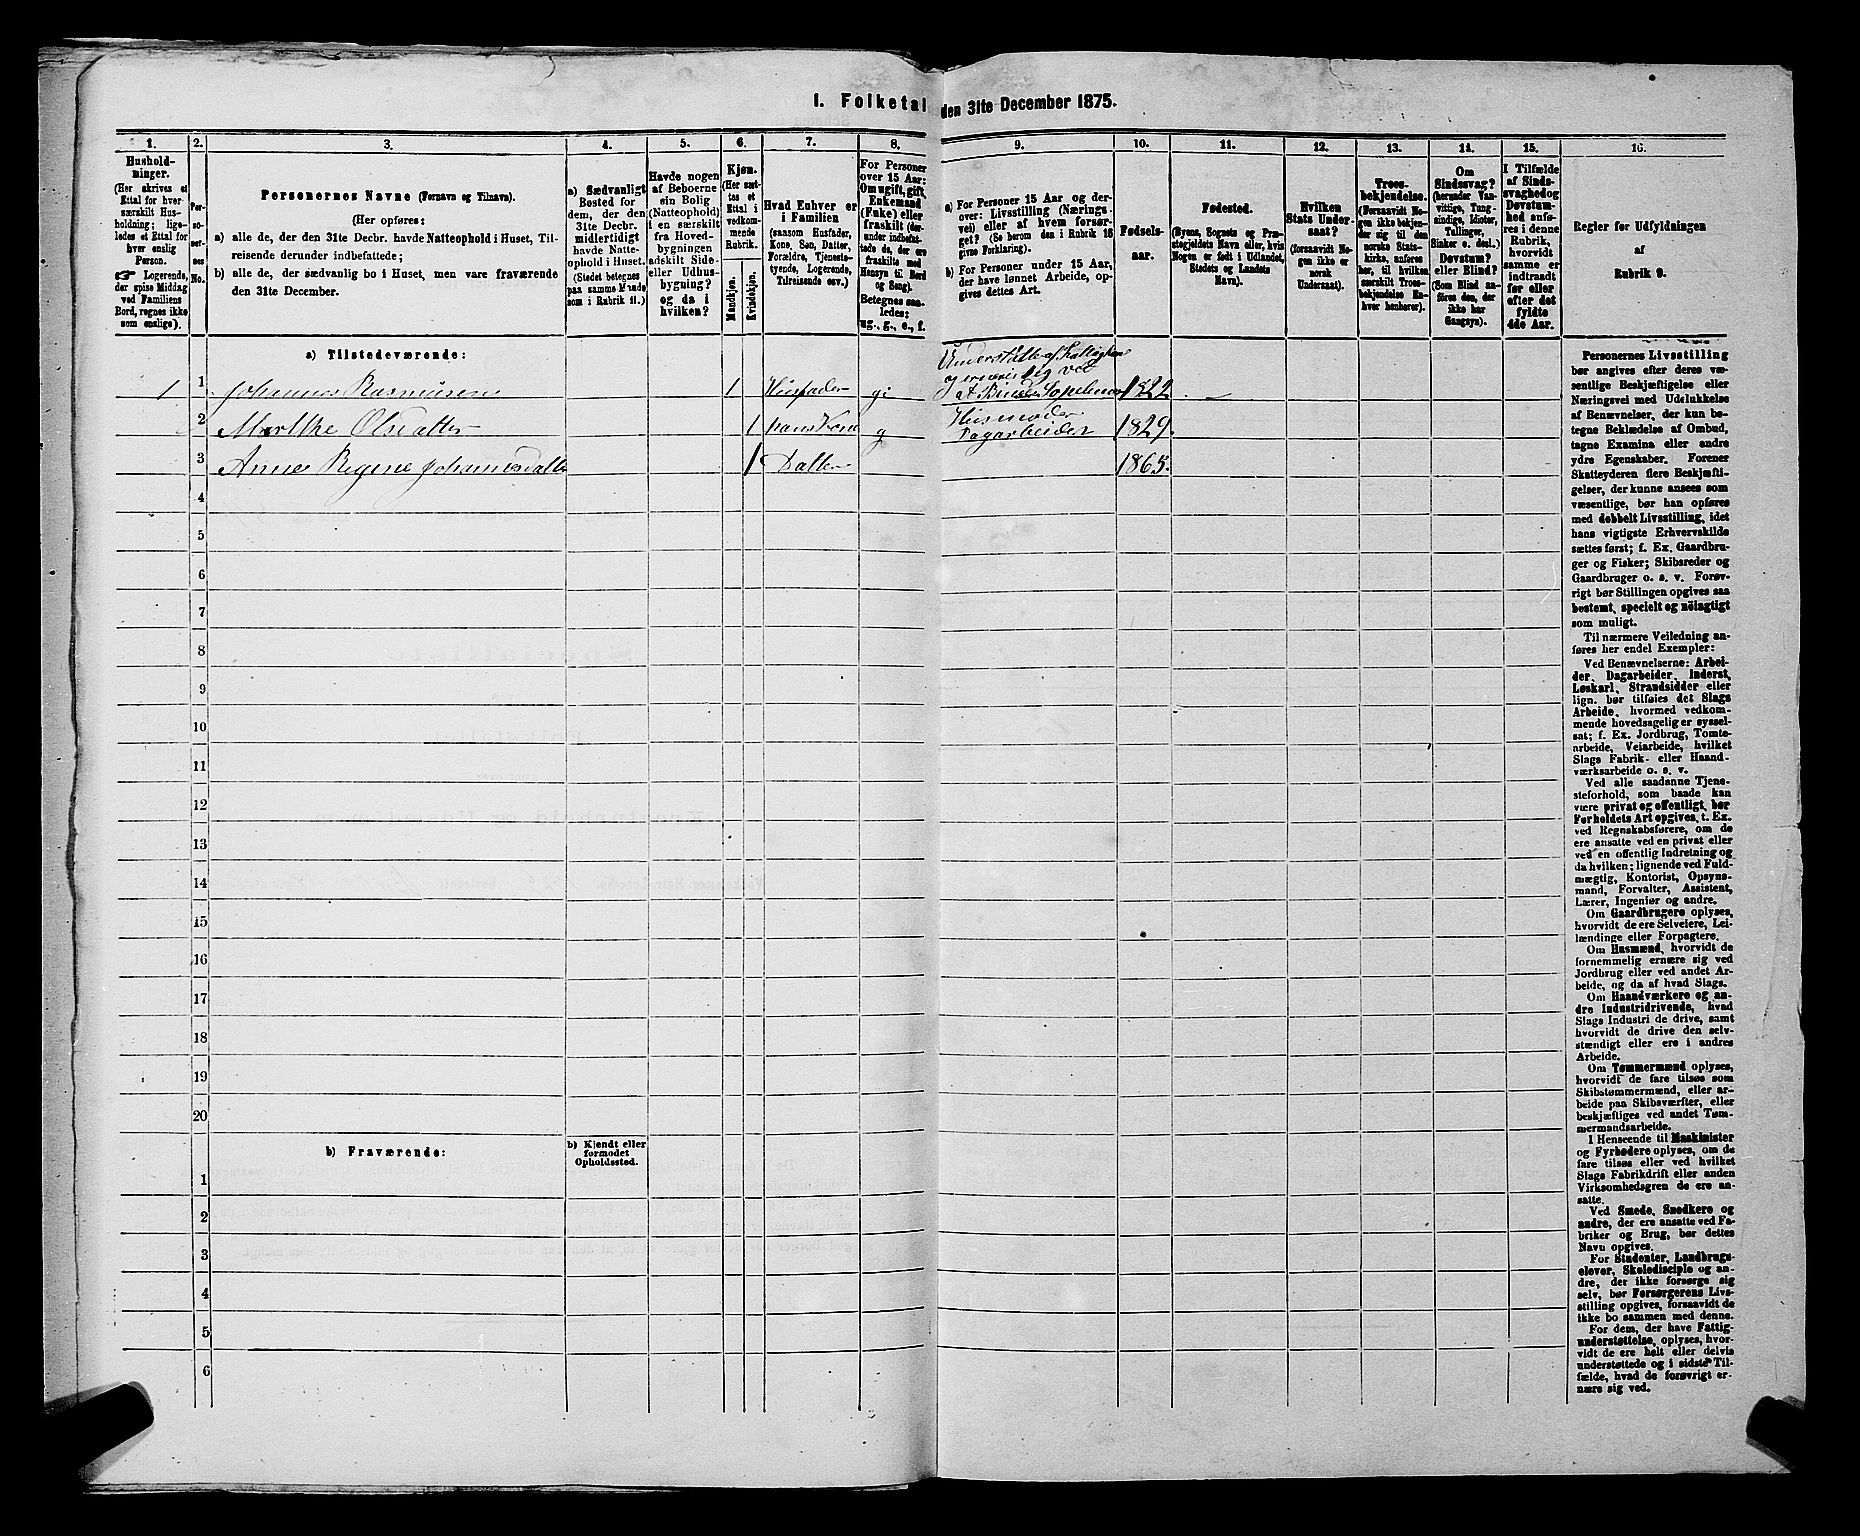 I. Folketal den 31te December 1875.
1.
Hushold-
ninger.
(Her skrives et
Ettal for hver
særskilt Hus-
holdning; lige-
ledes et Ettal for
hver enslig
Person.
☛ Logerende,
der spise Middag
ved Familiens
Bord, regnes ikke
som enslige).
2.
Per-
so-
ner-
nes
No.
3.
Personernes Navne (Fornavn og Tilnavn).
(Her opføres:
a) alle de, der den 31te Decbr. havde Natteophold i Huset, Til-
reisende derunder indbefattede;
b) alle de, der sædvanlig bo i Huset, men vare fraværende
den 31te December.
4.
a) Sædvanligt
Bosted for
dem, der den
31te Decbr.
midlertidigt
havde Natte-
ophold i Huset.
(Stedet betegnes
paa samme Maade
som i Rubrik 11.)
5.
Havde nogen
af Beboerne
sin Bolig
(Natteophold)
i en særskilt
fra Hoved-
bygningen
adskilt Side-
eller Udhus-
bygning?
og da i
hvilken?
6.
Kjøn.
(Her sæt-
tes et
Ettal i
vedkom-
mende
Rubrik.
Mandkjøn.
Kvindekjøn.
7.
Hvad Enhver er
i Familien
(saasom Husfader,
Kone, Søn, Datter,
Forældre, Tjeneste-
tyende, Logerende,
Tilreisende osv.)
8.
For Personer
over 15 Aar:
Om ugift, gift,
Enkemand
(Enke) eller
fraskilt (der-
under indbefat-
tede de, der ere
fraskilte med
Hensyn til Bord
og Seng).
Betegnes saa-
ledes:
ug., g., e., f.
9.
a) For Personer 15 Aar og der-
over: Livsstilling (Nærings-
vei) eller af hvem forsør-
get? (Se herom den i Rubrik 16
givne Forklaring).
b) For Personer under 15 Aar,
der have lønnet Arbeide, op-
gives dettes Art.
10.
Fødsels-
aar.
11.
Fødested.
(Byens, Sognets og Præ-
stegjeldets Navn eller, hvis
Nogen er født i Udlandet,
Stedets og Landets
Navn).
12.
Hvilken
Stats Under-
saat?
(forsaavidt No-
gen ikke er
norsk
Undersaat).
13.
Troes-
bekjendelse.
(Forsaavidt No-
gen ikke bekjen-
der sig til den
norske Stats-
kirke, anføres
her, til hvilken
særskilt Troes-
bekjendelse En-
hver henhører).
14.
Om
Sindssvag?
(herunder Van-
vittige, Tung-
sindige, Idioter,
Tullinger,
Sinker o. desl.)
Døvstum?
eller Blind?
(Som Blind an-
føres den, der
ikke har
Gangsyn).
15.
I Tilfælde
af Sinds-
svaghed og
Døvstum-
hed anfø-
res i denne
Rubrik,
hvorvidt
samme er
indtraadt
før eller
efter det
fyldte
4de Aar.
16.
Regler for Udfyldningen
af
Rubrik 9.
a) Tilstedeværende:
1 1 Johannes Rasmusen 1 Husfader gi 1822
2 Marthe Olsdatter 1 hans Kone g Husmoder
Dagarbeider 1829.
3 Anne Regine Johannesdatter 1 Datter 1865.
4
5
6
7
8
9
10
11
12
13
14
15
16
17
18
19
20
b) Fraværende:
b) Kjendt eller
formodet
Opholdssted.
1
2
3
4
5
6
Personernes Livsstilling
bør angives efter deres væ-
sentlige Beskjæftigelse eller
Næringsvei med Udelukkelse
af Benævnelser, der kun be-
tegne Beklædelse af Ombud,
tagne Examina eller andre
ydre Egenskaber. Forener
Skatteyderen flere Beskjæfti-
gelser, der kunne ansees som
væsentlige, bør han opføres
med dobbelt Livsstilling, idet
hans vigtigste Erhvervskilde
sættes først; f. Ex. Gaardbru-
ger og Fisker; Skibsreder og
Gaardbruger o. s. v. Forøv-
rigt bør Stillingen opgives saa
bestemt, specielt og nöiagtigt
som muligt.
Til nærmere Veiledning an-
føres her endel Exempler:
Ved Benævnelserne: Arbei-
der, Dagarbeider, Inderst,
Løskarl, Strandsidder eller
lign. bør tilføies det Slags
Arbeide, hvormed vedkom-
mende hovedsagelig er syssel-
sat; f. Ex. Jordbrug, Tomte-
arbeide, Veiarbeide, hvilket
Slags Fabrik- eller Haand-
værksarbeide o. s. v.
Ved alle saadanne Tjene-
steforhold, som baade kan
være privat og offentligt, bør
Forholdets Art opgives, t. Ex.
ved Regnskabsførere, om de
ere ansatte ved en privat eller
ved en offentlig Indretning og
da hvilken; lignende ved Fuld-
mægtig, Kontorist, Opsyns-
mand, Forvalter, Assistent,
Lærer, Ingeniør og andre.
Om Gaardbrugere oplyses,
hvorvidt de ere Selveiere, Lei-
lændinge eller Forpagtere.
Om Husmænd, hvorvidt de
fornemmelig ernære sig ved
Jordbrug eller ved andet Ar-
beide, og da af hvad Slags.
Om Haandværkere og an-
dre Industridrivende, hvad
Slags Industri de drive, samt
hvorvidt de drive den selv-
stændigt eller ere i andres
Arbeide.
Om Tømmermænd oplyses,
hvorvidt de fare tilsøs som
Skibstømmermænd, eller ar-
beide paa Skibsværfter, eller
beskjæftiges ved andet Tøm-
mermandsarbeide.
I Henseende til Maskinister
og Fyrbødere oplyses, om de
fare tilsøs eller ved hvilket
Slags Fabrikdrift eller anden
Virksomhedsgren de ere an-
satte.
Ved Smede, Snedkere og
andre, der ere ansatte ved Fa-
briker og Brug, bør dettes
Navn opgives.
For Studenter, Landbrugs-
elever, Skoledisciple og an-
dre, der ikke forsørge sig
selv, bør Forsørgerens Livs-
stilling opgives, forsaavidt de
ikke bo sammen med denne.
For dem, der have Fattig-
understøttelse, oplyses, hvor-
vidt de ere helt eller delvis
understøttede og i sidste Til-
fælde, hvad de forøvrigt er-
nære sig ved.